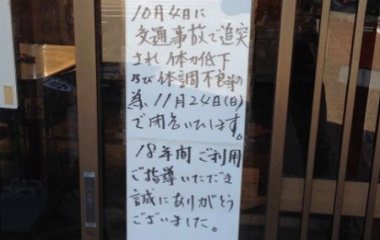 10月4日に
交通事故で追突
され体力低下
及び体調不良等の
為11月24日(日)
で閉店いたします。
18年間ご利用
ご指導いただき
誠にありがとう
ございました。